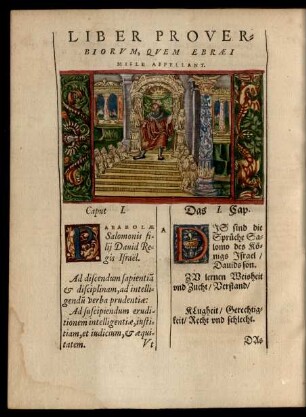 LIBER PROVER-
BIORVM, QVEM EBRAEI
MISLE APPELLANT.
Caput I.
PARABOLÆ
Salomonis fi-
lij Dauid Re-
gis Israel.
Ad discendum sapientiā
& disciplinam, ad intelli-
gendū verba prudentiæ:
Ad suscipiendum erudi-
tionem intelligentiæ, iusti-
tiam, et iudicium, & æqui-
tatem.
Vt
Das I. Cap.
A
DIS sind die
Sprüche Sa-
lomo des Kö-
nigs Israel/
Dauids son.
ZV lernen Weisheit
vnd Zucht/ Verstand/
Klugheit/ Gerechtig-
keit/ Recht vnd schlecht.
DAs